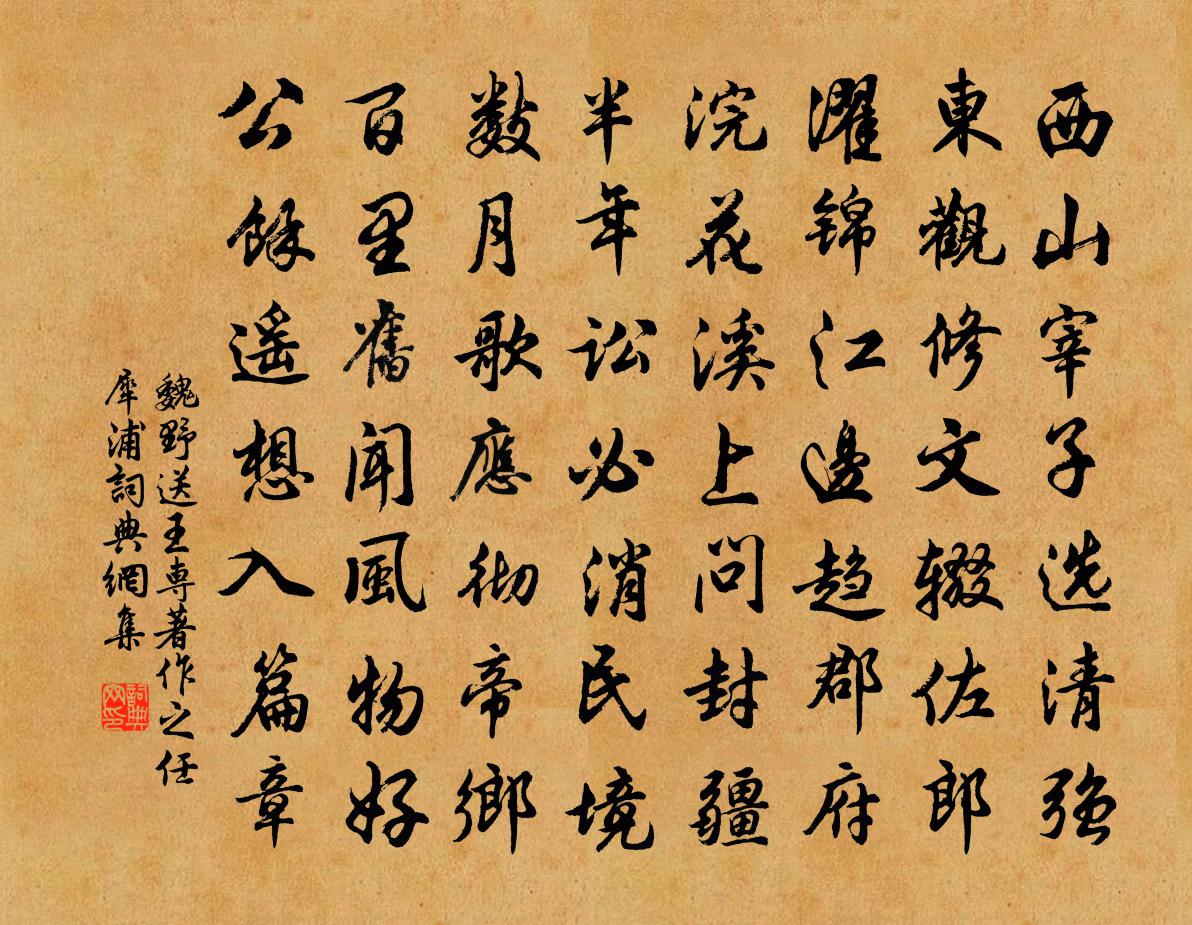 西山宰子选清强
東觀修文辍佐郎
濯锦江邊趋郡府
浣花溪上问封疆
半年讼必消民境
数月歌應彻帝鄉
百里舊闻風物好
公餘遥想入篇章
魏野送王専著作之任
犀浦詞典網集
詞典
网印